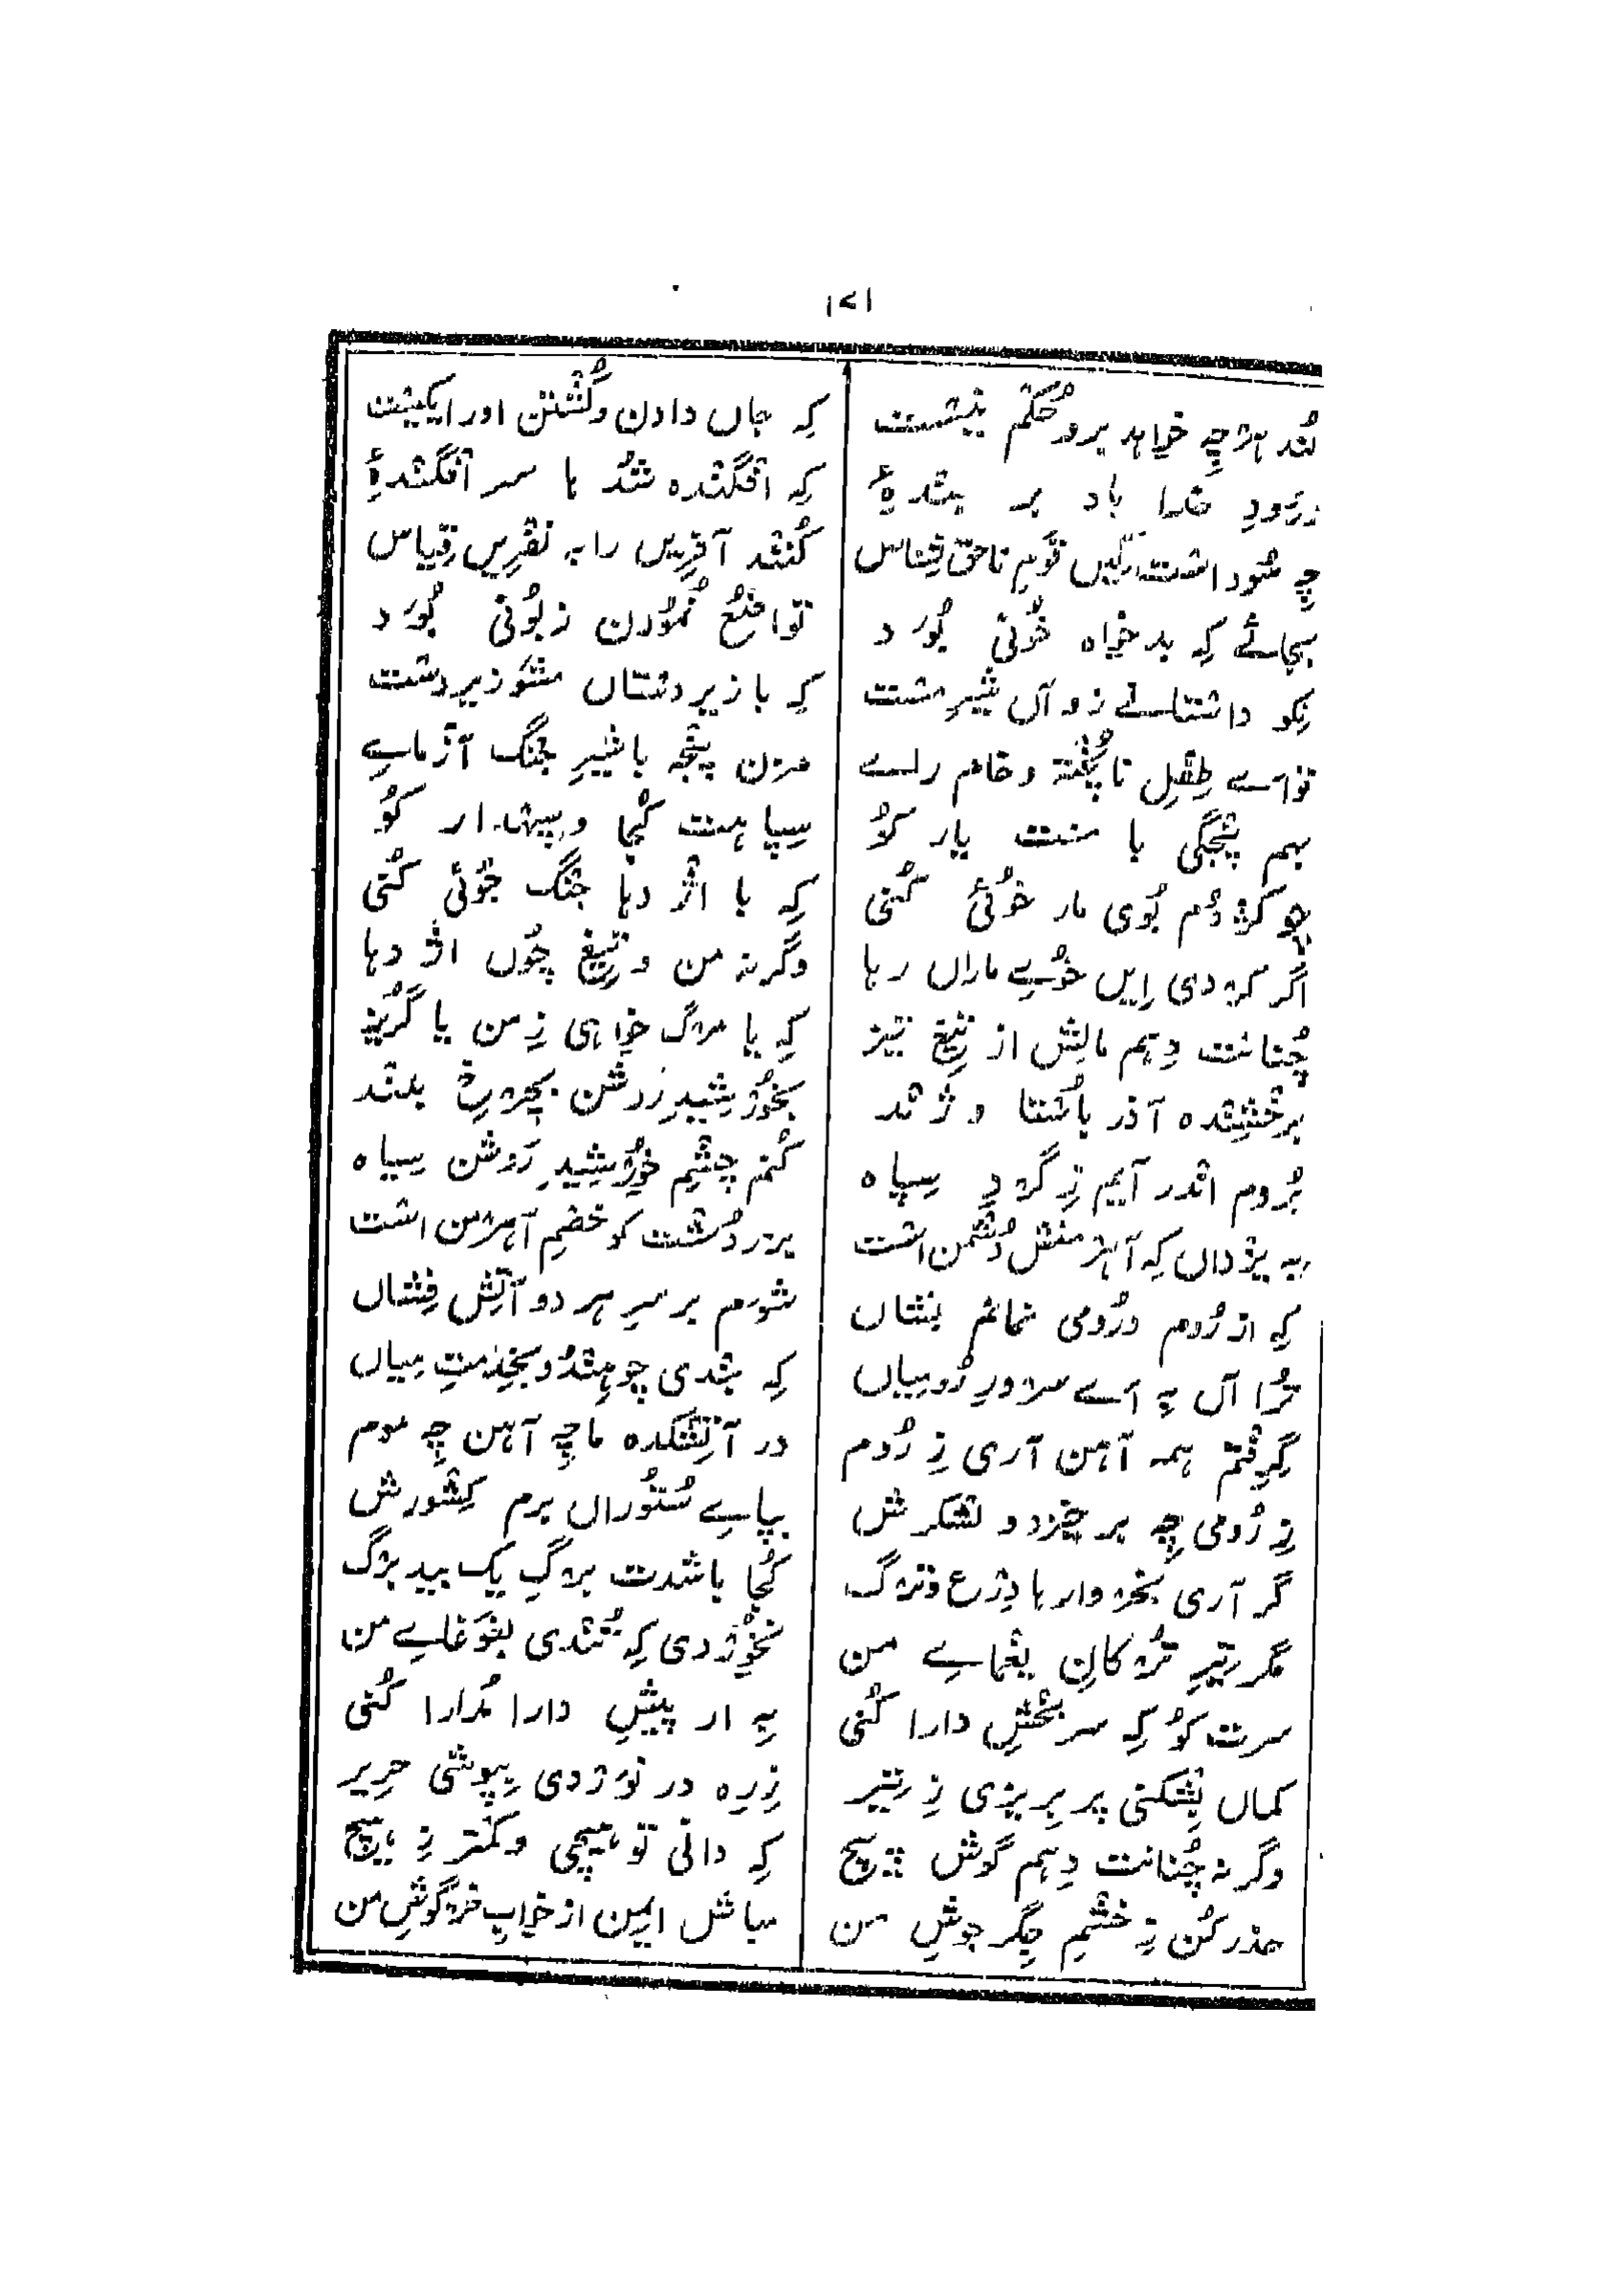 ۱۷۱
کُند ہرچِہ خواہد برو حُکم نیشت کِہ جاں دادن و کُشتن اورا یکیشت
درودِ خدا باد بر بندۂ کِہ افگندہ شُد با سر افگندۂ
چِہ سُود است کیں قومِ ناحق شِناس کُنند آفرِیں را بہ نفرِیں قِیاس
بجائے کِہ بدخواہ خُونی بُوَد تواضُع نُمودن زبُونی بُوَد
نِکو داستانے زد آں شیرِ مست کِہ با زیر دستاں مشَو زیر دست
تو اے طِفلِ ناپُختہ و خام راے مزن پنجہ با شیرِ جنگ آزماے
بہم پنجگی با منت یار کوُ سِپاہت کُجا و سِپہدار کوُ
چو کژدُم بُوی مار خُوئی کُنی کِہ با اژدہا جنگ جُوئی کُنی
اگر کردی اِیں خُوے ماراں رہا وگرنہ من و تیغِ چُوں اژدہا
چُنانت دِہم مالِش از تیغِ تیز کِہ یا مرگ خواہی زِ من یا گُریز
برخشندہ آذر باُستا و ژند بخُورشیدِ روشن بچرخِ بلند
بُروم اندر آیم زِ گردِ سِپاہ کُنم چشمِ خورشیدِ روشن سِیاہ
بہ یزداں کِہ آہرمنش دُشمن است بزردُشت کو خصمِ آہرمن است
کِہ از رُوم و رُومی نمانم نِشاں شَوَم بر سرِ ہر دو آتِش فِشاں
تُرا آں بِہ اے سرورِ رُومِیاں کِہ بندی چو ہِندُو بخِدمت مِیاں
گِرِفتم ہمہ آہن آری زِ رُوم در آتِشکدہ ما چِہ آہن چِہ موم
زِ رُومی چِہ بر خیزد و لشکرش بپاے سُتُوراں برم کِشورش
گر آری بخروارہا دِرع و ترگ کُجا باشدت برگِ یک بید برگ
مگر تیرِ تُرکانِ یغماے من نخُوردی کِہ تُندی بغَوغاے من
سرت کوُ کِہ سر بخشِ دارا کُنی بِہ ار پیشِ دارا مُدارا کُنی
کماں بِشکنی پر بِریزی زِ تیر زِرِہ در نوَردی بِپوشی حرِیر
وگرنہ چُنانت دِہم گوش پیچ کِہ دانی تو ہیچی و کمتر زِ ہیچ
حذر کُن زِ خشمِ جِگر جوشِ من مباش ایمِن از خوابِ خرگوشِ من